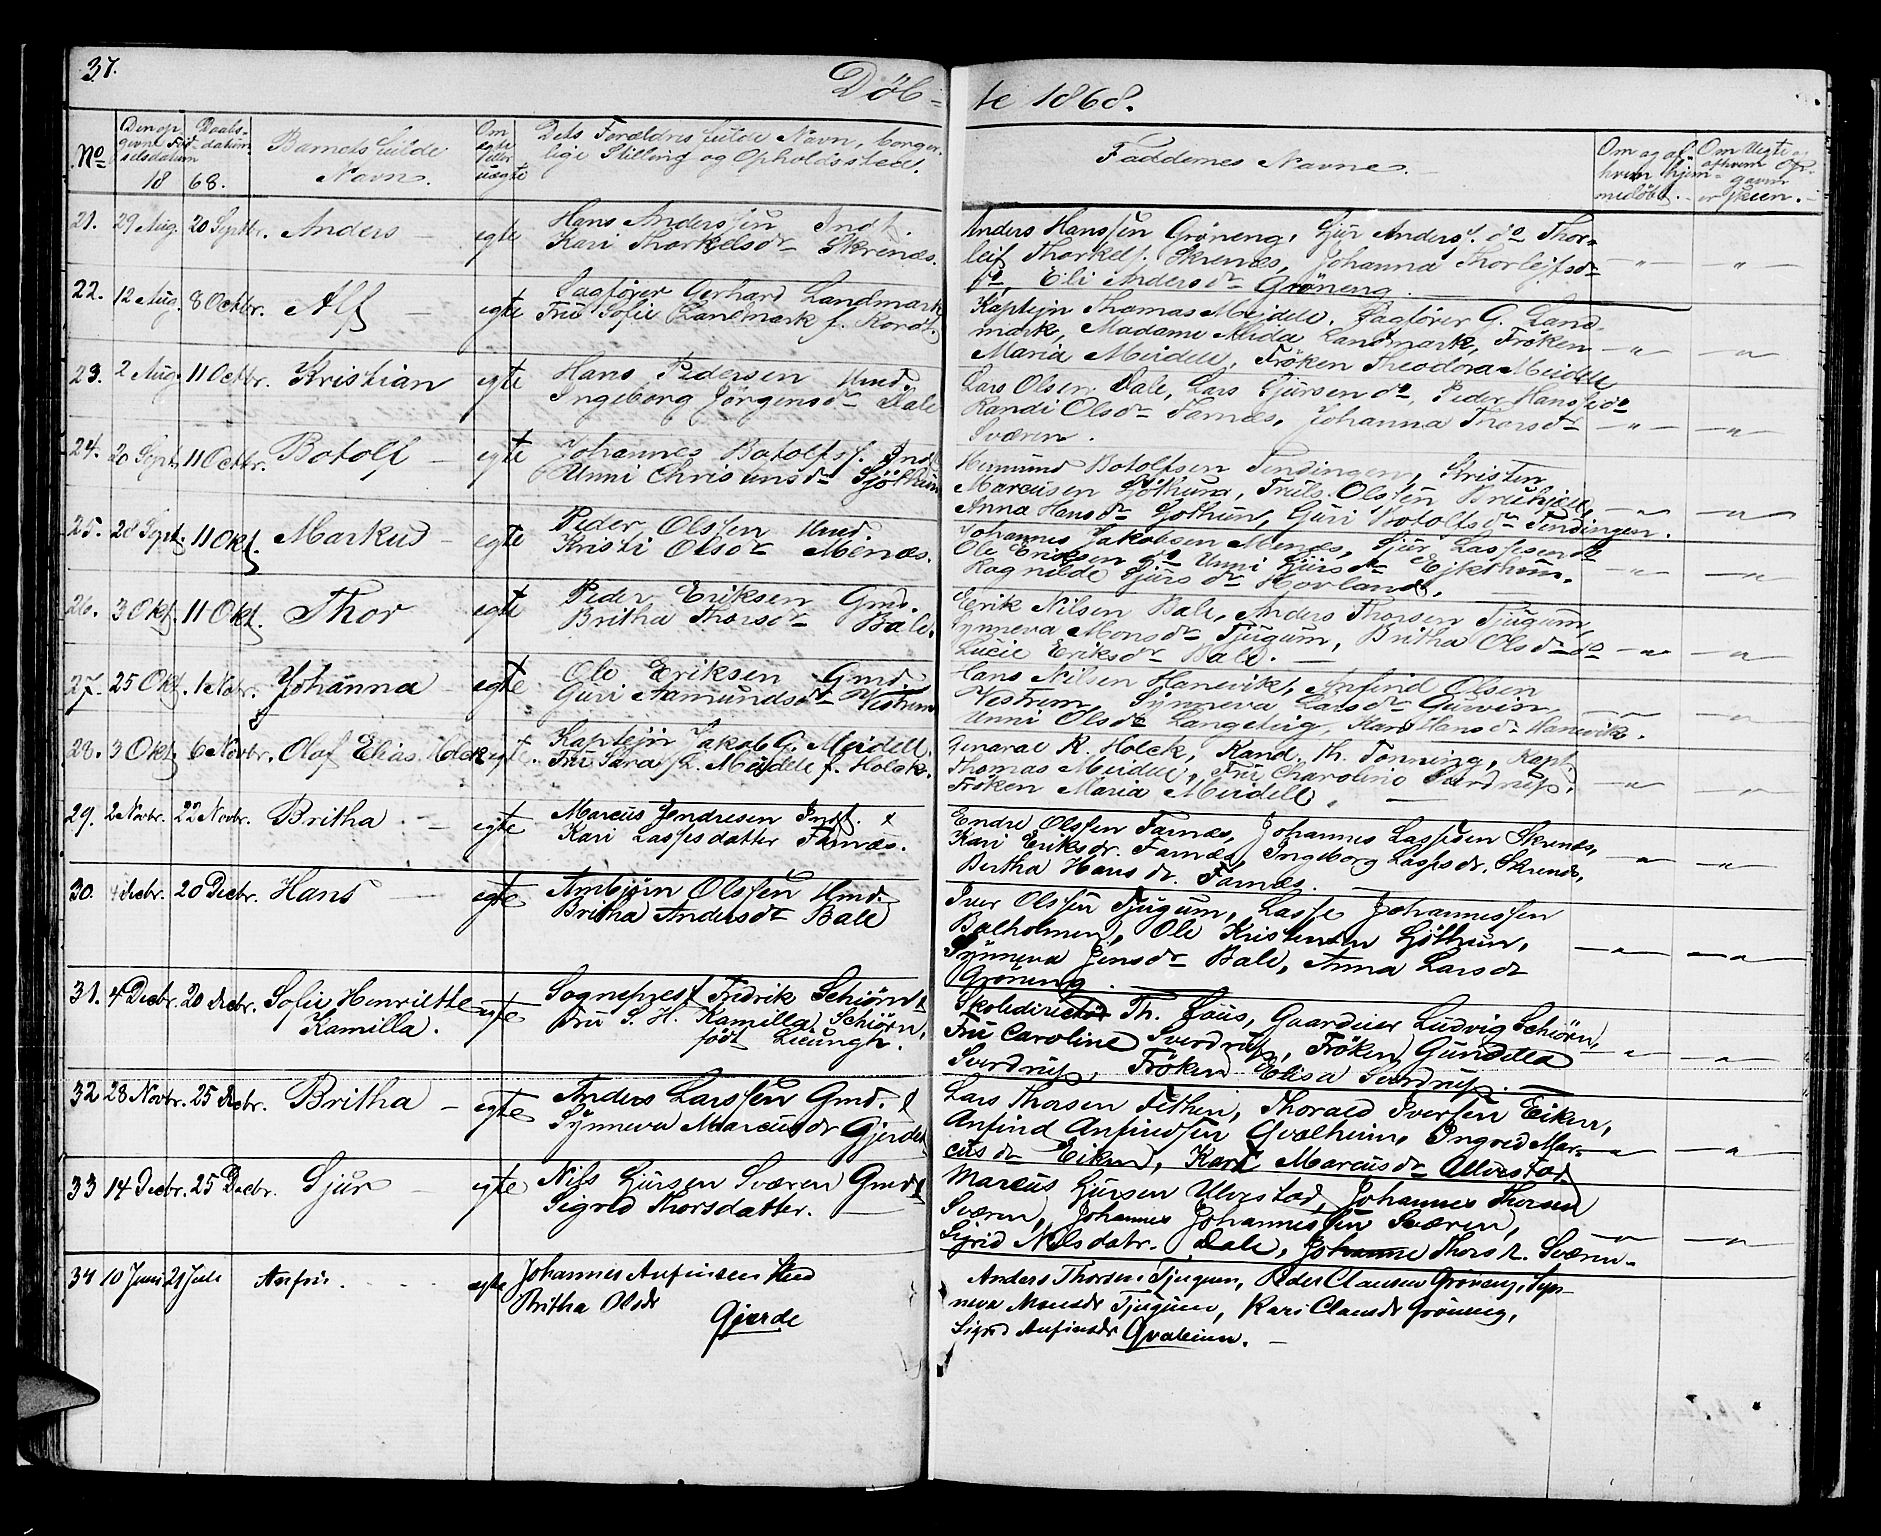 37.
Döb-
te 1868.
No
Den op
givne Föd
selsdatum
18
Daabs-
datum
68.
Barnets fulde
Navn.
Om
egte
eller
uegte
Dets Forældres fulde Navn, borger
lige Stilling og Opholdssted.
Faddernes Navne.
Om og af
hvem hjem-
medöbt.
Om Uegte
afhvem op-
given
er skeen.
21. 29 Aug. 20 Septbr. Anders - egte
Hans Anderssen Indst.
Kari Thorkelsdr Skrenæs.
Anders Hanssen Gröneng, Sjur Anders. do Thor-
leif Thorkels. Skrenæs, Johanna Thorleifsdr
do, Eli Andersdr Gröneng.
22. 12 Aug. 8 Octbr. Alf - egte
Sagförer Gerhard Landmark
Frü Sofie Landmark f.
Kaptejn Thomas Meidell, Sagförer G. Land-
mark, Madame Alida Landmark, Fröken
Maria Meidell, Fröken Theodora Meidell
23. 2 Aug. 11 Octbr. Kristian egte
Hans Pedersen Hmd.
Ingeborg Jörgensdr Dale
Lars Olsen Dale, Lars Sjursen do, Peder Hanssen do
Randi Olsdr Farnæs, Johanna Thorsdr
Sværen.
24. 20 Sept. 11 Octbr. Botolf - egte
Johannes Botolfs. Ind
Unni Christensdr Sjöthun
Hermund Botolfsen Tendingen, Kristen
Marcusen Sjöthun, Truls Olssen
Anna Hansdr Sjöthun, Guri Botolfsdr Tendingen.
25. 28 Sept. 11 Okt. Markus - egte
Peder Olssen Hmd.
Kristi Olsdr Menæs.
Johannes Jakobsen Menæs, Sjur Lassesen do
Ole Eriksen do Unni Sjursdr Eikthun.
Ragnilde Sjursdr Hovland.
26. 3 Okt. 11 Okt. Thor egte
Peder Eriksen Gmd.
Britha Thorsdr Bale.
Erik Nilsen Bale, Anders Thorsen Tjugum,
Synneva Monsdr Tjugum, Britha Olsdr do
Lucie Eriksdr Bale. -
27. 25 Okt. 1 Novbr. Johanna - egte
Ole Eriksen Gmd.
Guri Aamundsdr Vestrem
Hans Nilsen Hanevik, Anfind Olsen
Vestrem, Synneva Larsdr Gurvin,
Unni Olsdr Langeteig, Kari Hansdr Hanevik.
28. 3 Okt. 6 Novbr. Olaf Elias Holck egt.
Kaptejn Jakob G. Meidell
Frü Sara L. Meidell f. Holck.
General R. Holck, Kand. Th. Tonning, Kapt.
Thomas Meidell, Frü Charoline Sverdrup.
Fröken Maria Meidell. -
29. 2 Novbr. 22 Novbr. Britha. - egte
Marcus Jendresen Indst.
Kari Lassesdatter Farnæs.
Endre Olssen Farnæs, Johannes Lassesen Skrenæs,
Kari Eriksdr. Farnæs, Ingeborg Lassesdr. Skrenæs,
Bertha Hansdr. Farnæs. -
30. 4 Decbr. 20 Decbr. Hans - egte
Ambjörn Olssen Hmd.
Britha Andersdr Bale
Iver Olssen Tjugum, Lasse Johannessen
Balholmen, Ole Kristensen Sjöthun,
Synneva Jensdr Bale, Anna Larsdr
Gröneng.
31. 4 Decbr. 20 Decbr. Sofie Henriette egte
Kamilla.
Sogneprest Fredrik Schiörn
Frü S. H. Kamilla Schiörn,
födt Lieungh.
Skoledirectör Th. Säus, Guardeier Ludvig Schiörn,
Frü Caroline Sverdrup, Fröken Gundella
Sverdrup, Fröken Elisa Sverdrup. -
32 28 Novbr. 25 Decbr. Britha - egte
Anders Larssen Gmd.
Synneva Marcusdr Gjerde
Lars Thorsen Fethen, Thorald Iversen Eiken,
Anfind Anfindsen Qvalheim, Ingred Mar-
cusdr Eiken, Kari Marcusdr Ullvestad
33 14 Decbr. 25 Decbr. Sjur - egte
Nils Sjursen Sværen Gmd
Sigrid Thorsdatter. -
Marcus Sjursen Ulvestad, Johannes Thorsen
Sværen, Johannes Johannessen Sværen,
Sigrid Nilsdatr. Dale, Johanne Thorsdr. Sværen.
34 10 Juni 21 Jule Anfin. egte
Johannes Anfinsen
Britha Olsdr
Gjerde
Anders Thorsen Tjugum, Peder Clausen Gröneng, Syn-
neva Monsdr Tjugum, Kari Clausdr Gröneng,
Sigrid Anfinsdr Qvaleim. -